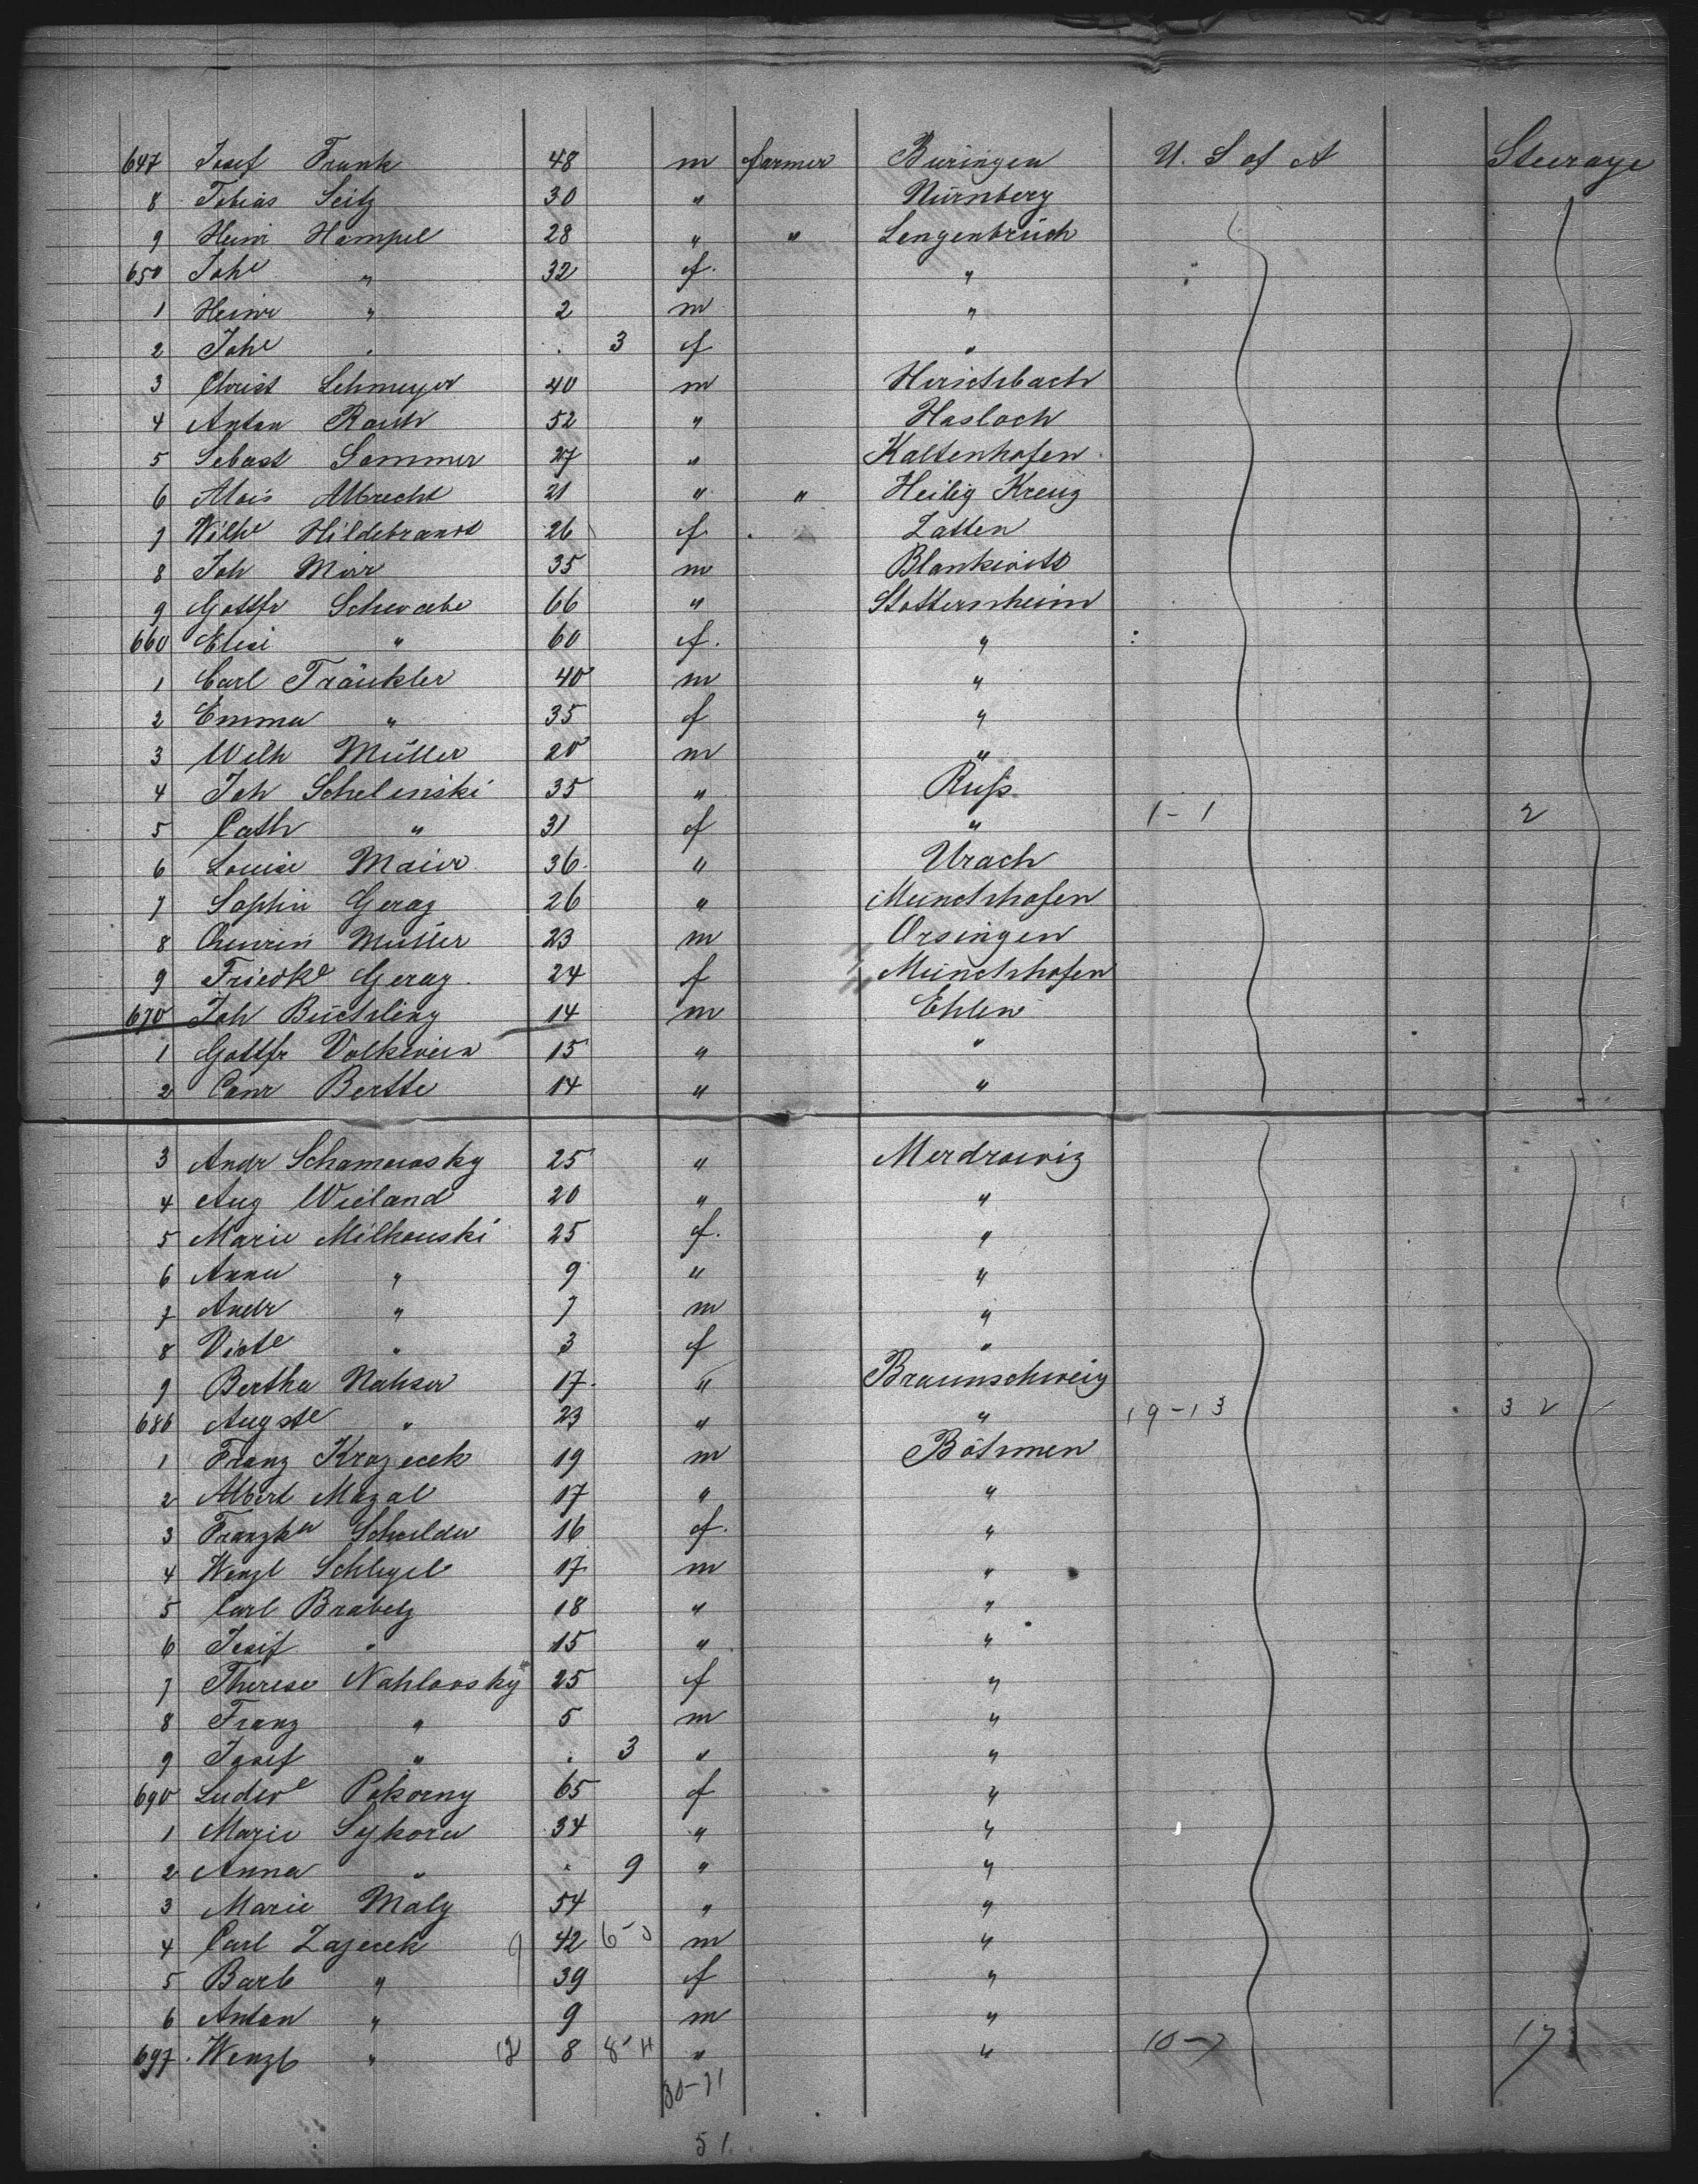 647 Josef Frank 48 m farmer Büringen U. S of A Steerage
8 Tobias Seitz 30 " Nürnberg
9 Heinr Hampel 28 " " Lengenbruch
650 Johe " 32 f. "
1 Heinr " 2 m "
2 Johe " . 3 f "
3 Christ Lehmeyer 40 m Hirschbach
4 Anton Rauh 52 " Hasloch
5 Sebast Sommer 27 " Kaltenhofen
6 Alois Albrecht 21 " " Heilig Kreuz
7 Wilhe Hildebrandt 26 f. Zatten
8 Joh Mirr 35 m Blankwitt
9 Gottfr Schwabe 66 " Stotternheim
660 Elise " 60 f. "
1 Carl Träukler 40 m "
2 Emma " 35 f "
3 Wilh Müller 20 m "
4 Joh Schelinski 35 " Russ
5 Cath " 31 f " 1-1 2
6 Louise Maier 36 " Urach
7 Sophie Geraz 26 " Münchhofen
8 Müller 23 m Orsingen
9 Friedke Geraz 24 f Münchhofen
670 Joh Büchling 14 m Ehlen
1 Gottfr Volkwein 15 " "
2 Conr Bertte 14 " "
3 Andr Schamowsky 25 " Merdrowiz
4 Aug Wieland 20 " "
5 Marie Milkouski 25 f. "
6 Anna " 9 " "
7 Andr " 7 m "
8 Victe " 3 f "
9 Bertha Nahser 17 " Braunschweig
686 Auguste " 23 " " 19-13 32
1 Franz Krazecek 19 m Böhmen
2 Albert Mazal 17 " "
3 Franzka Schulda 16 f. "
4 Wenzl Schlegel 17 m "
5 Carl Brabetz 18 " "
6 Josif " 15 " "
7 Therese Nahlovsky 25 f "
8 Franz " 5 m "
9 Josef " . 3 " "
690 Ludwe Pokorny 65 f "
1 Marie Sykora 34 " "
2 Anna " . 9 " "
3 Marie Maly 54 " "
4 Carl Zajecek 9 42 m "
5 Barb " 39 f "
6 Anton " 9 m "
697 Wenzl " 12 8 " " 10-7 17
30-21
51